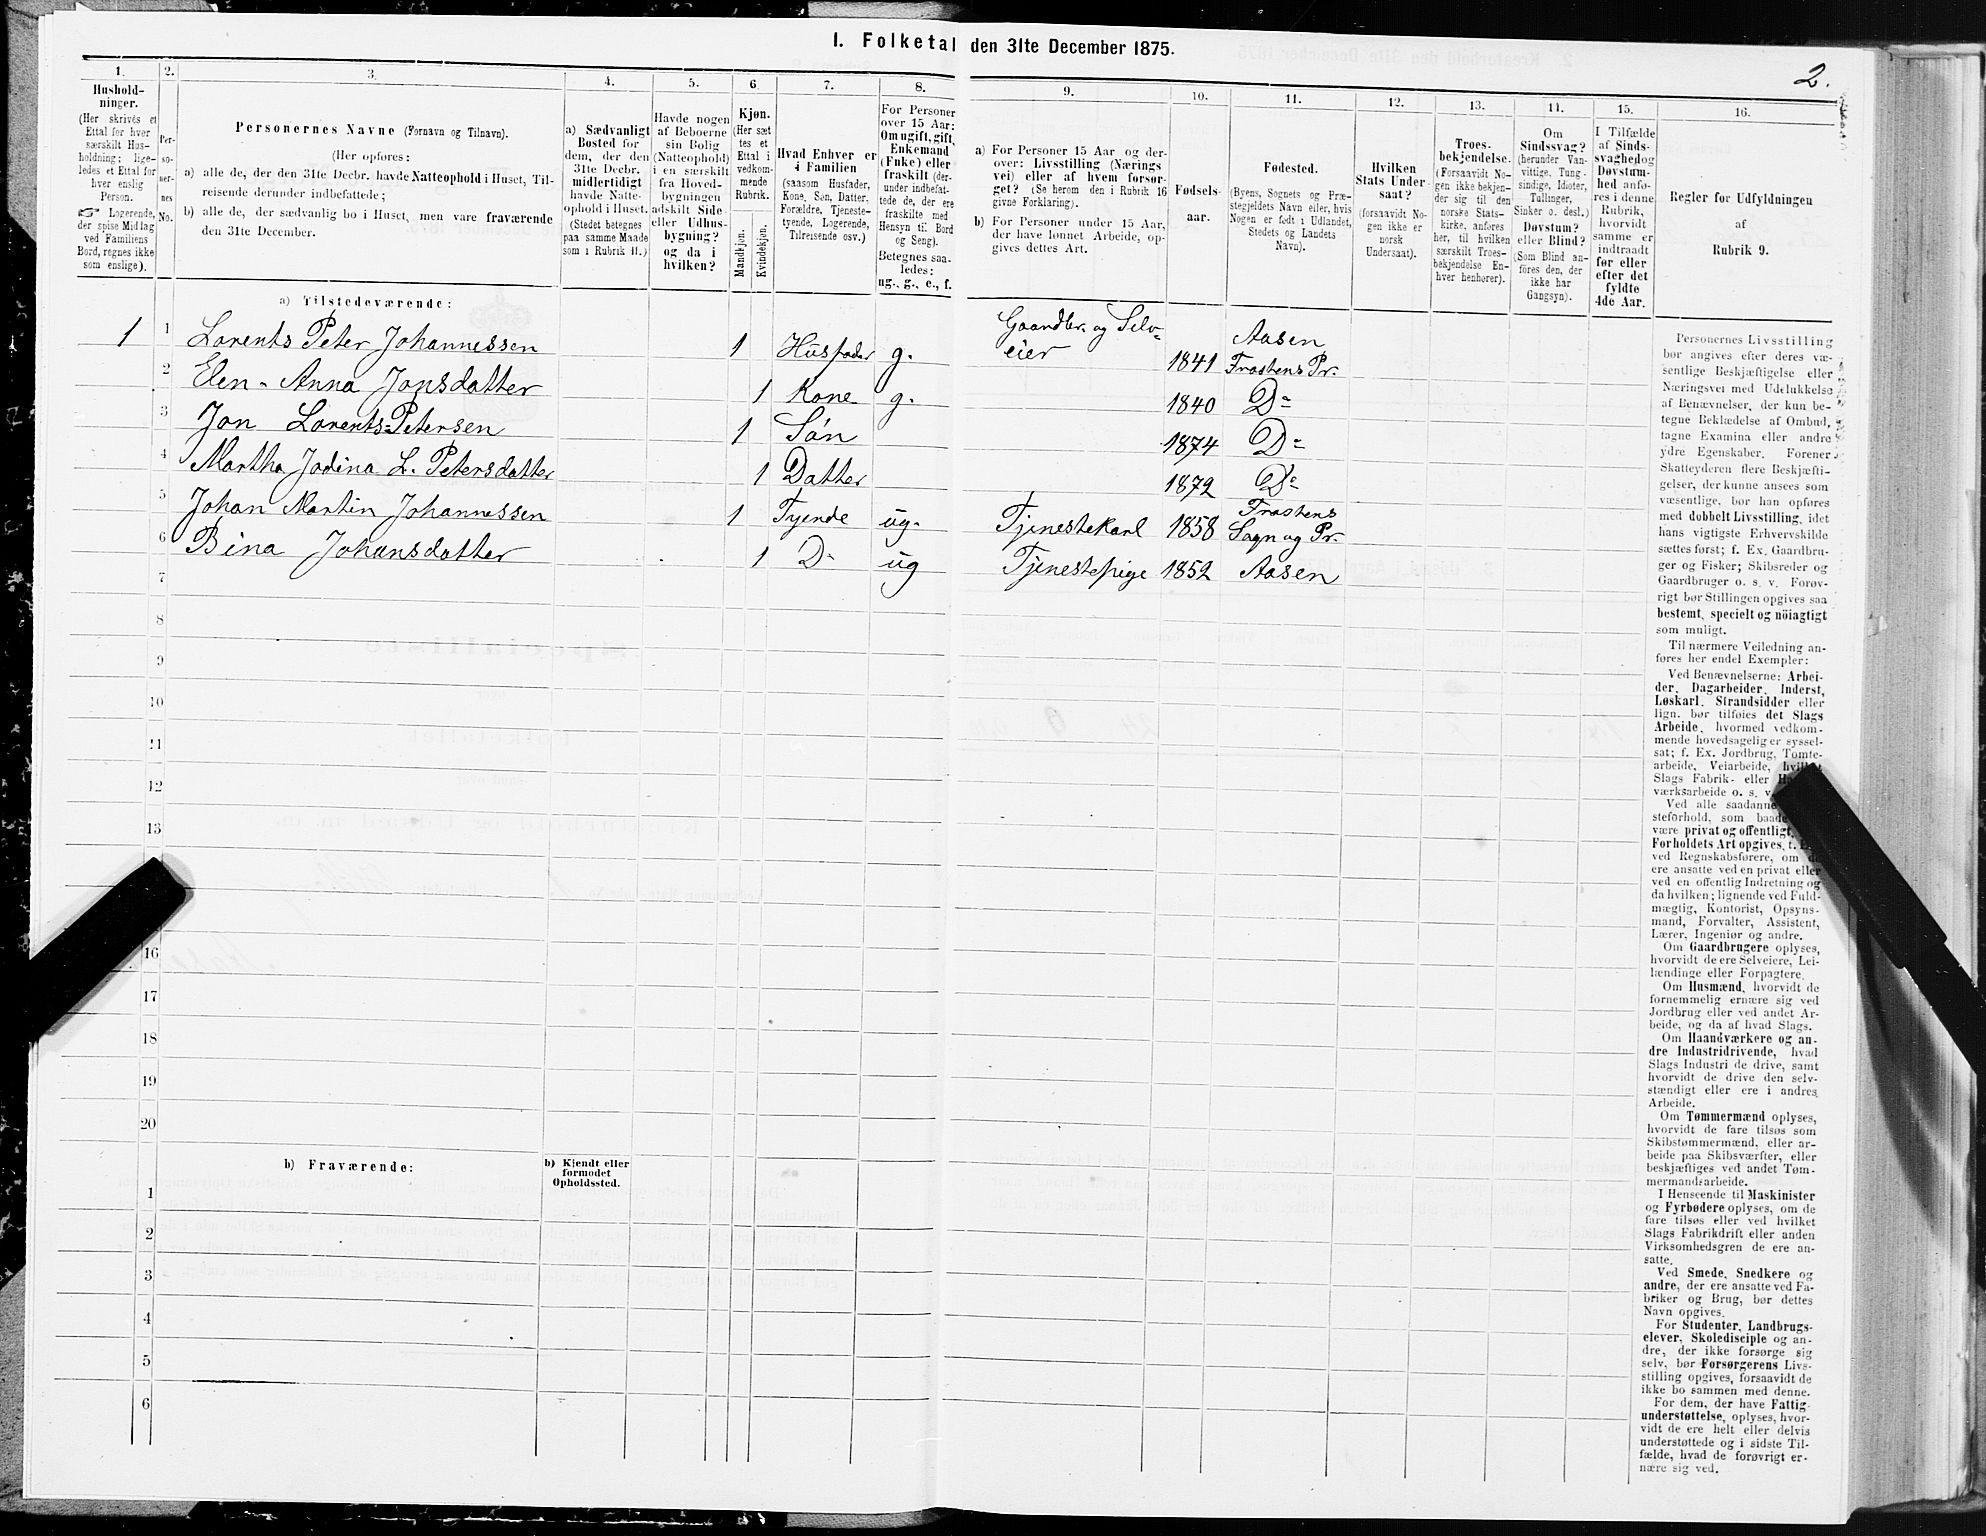 I. Folketal den 31te December 1875.
2.
1.
2.
3.
4.
5.
6.
7.
8.
9.
10.
11.
12.
13.
14.
15.
16.
Hushold-
ninger.
(Her skrives et
Ettal for hver
særskilt Hus-
holdning; lige-
ledes et Ettal for
hver enslig
Person.
☞ Logerende,
der spise Middag
ved Familiens
Bord, regnes ikke
som enslige).
Per-
so-
ner-
nes
No.
Personernes Navne (Fornavn og Tilnavn).
(Her opføres:
a) alle de, der den 31te Decbr. havde Natteophold i Huset, Til-
reisende derunder indbefattede;
b) alle de, der sædvanlig bo i Huset, men vare fraværende
den 31te December.
a) Sædvanligt
Bosted for
dem, der den
31te Decbr.
midlertidigt
havde Natte-
ophold i Huset.
(Stedet betegnes
paa samme Maade
som i Rubrik 11.)
Havde nogen
af Beboerne
sin Bolig
(Natteophold)
i en særskilt
fra Hoved-
bygningen
adskilt Side-
eller Udhus-
bygning?
og da i
hvilken?
Kjøn.
(Her sæt-
tes et
Ettal i
vedkom-
mende
Rubrik.
Mandkjøn.
Kvindekjøn.
Hvad Enhver er
i Familien
(saasom Husfader,
Kone, Søn, Datter,
Forældre, Tjeneste-
tyende, Logerende,
Tilreisende osv.)
For Personer
over 15 Aar:
Om ugift, gift,
Enkemand
(Enke) eller
fraskilt (der-
under indbefat-
tede de, der ere
fraskilte med
Hensyn til Bord
og Seng).
Betegnes saa-
ledes:
ug., g., e., f.
a) For Personer 15 Aar og der-
over: Livsstilling (Nærings
vei) eller af hvem forsør-
get? (Se herom den i Rubrik 16
givne Forklaring).
b) For Personer under 15 Aar,
der have lønnet Arbeide, op-
gives dettes Art.
Fødsels-
aar.
Fødested.
(Byens, Sognets og Præ-
stegjeldets Navn eller, hvis
Nogen er født i Udlandet,
Stedets og Landets
Navn).
Hvilken
Stats Under-
saat?
(forsaavidt No-
gen ikke er
norsk
Undersaat).
Troes-
bekjendelse.
(Forsaavidt No-
gen ikke bekjen-
der sig til den
norske Stats-
kirke, anføres
her, til hvilken
særskilt Troes-
bekjendelse En-
hver henhører).
Om
Sindssvag?
(herunder Van-
vittige, Tung-
sindige, Idioter,
Tullinger,
Sinker o. desl.)
Døvstum?
eller Blind?
(Som Blind an-
føres den, der
ikke har
Gangsyn).
I Tilfælde
af Sinds-
svaghed og
Døvstum-
hed anfø-
res i denne
Rubrik,
hvorvidt
samme er
indtraadt
før eller
efter det
fyldte
4de Aar.
Regler for Udfyldningen
af
Rubrik 9.
a) Tilstedeværende:
1 1 Lorents Peter Johannessen 1 Husfader g. Gaardbr. og Selv-
eier 1841 Aasen
Frostens Pr.
2 Elen-Anna Jonsdatter 1 Kone g. 1840 Do
3 Jon Lorents-Petersen 1 Søn 1874 Do
4 Martha Jodina L. Petersdatter 1 Datter 1872 Do
5 Johan Martin Johannessen 1 Tyende ug. Tjenestekarl 1858 Frostens
Sogn og Pr.
6 Bina Johansdatter 1 Do ug Tjenestepige 1852 Aasen
7
8
9
10
11
12
13
16
17
18
19
20
b) Fraværende:
b) Kjendt eller
formodet
Opholdssted.
1
2
3
4
5
6
Personernes Livsstilling
bør angives efter deres væ-
sentlige Beskjæftigelse eller
Næringsvei med Udelukkelse
af Benævnelser, der kun be-
tegne Beklædelse af Ombud,
tagne Examina eller andre
ydre Egenskaber. Forener
Skatteyderen flere Beskjæfti-
gelser, der kunne ansees som
væsentlige, bør han opføres
med dobbelt Livsstilling, idet
hans vigtigste Erhvervskilde
sættes først; f. Ex. Gaardbru-
ger og Fisker; Skibsreder og
Gaardbruger o. s. v. Forøv-
rigt bør Stillingen opgives saa
bestemt, specielt og nöiagtigt
som muligt.
Til nærmere Veiledning an-
føres her endel Exempler:
Ved Benævnelserne: Arbei-
der, Dagarbeider, Inderst,
Løskarl, Strandsidder eller
lign. bør tilføies det Slags
Arbeide, hvormed vedkom-
mende hovedsagelig er syssel-
sat; f. Ex. Jordbrug, Tomte-
arbeide, Veiarbeide, hvilket
Slags Fabrik- eller
værksarbeide o. s. v.
Ved alle saadanne
steforhold, som baade
være privat og offentligt,
Forholdets Art opgives, f.
ved Regnskabsførere, om
ere ansatte ved en privat eller
ved en offentlig Indretning og
da hvilken; lignende ved Fuld-
mægtig, Kontorist, Opsyns-
mand, Forvalter, Assistent,
Lærer, Ingeniør og andre.
Om Gaardbrugere oplyses,
hvorvidt de ere Selveiere, Lei-
lændinge eller Forpagtere.
Om Husmænd, hvorvidt de
fornemmelig ernære sig ved
Jordbrug eller ved andet Ar-
beide, og da af hvad Slags.
Om Haandværkere og an-
dre Industridrivende, hvad
Slags Industri de drive, samt
hvorvidt de drive den selv-
stændigt eller ere i andres
Arbeide.
Om Tømmermænd oplyses,
hvorvidt de fare tilsøs som
Skibstømmermænd, eller ar-
beide paa Skibsværfter, eller
beskjæftiges ved andet Tøm-
mermandsarbeide.
I Henseende til Maskinister
og Fyrbødere oplyses, om de
fare tilsøs eller ved hvilket
Slags Fabrikdrift eller anden
Virksomhedsgren de ere an-
satte.
Ved Smede, Snedkere og
andre, der ere ansatte ved Fa-
briker og Brug, bør dettes
Navn opgives.
For Studenter, Landbrugs-
elever, Skoledisciple og an-
dre, der ikke forsørge sig
selv, bør Forsørgerens Livs-
stilling opgives, forsaavidt de
ikke bo sammen med denne.
For dem, der have Fattig-
understøttelse, oplyses, hvor-
vidt de ere helt eller delvis
understøttede og i sidste Til-
fælde, hvad de forøvrigt er-
nære sig ved.